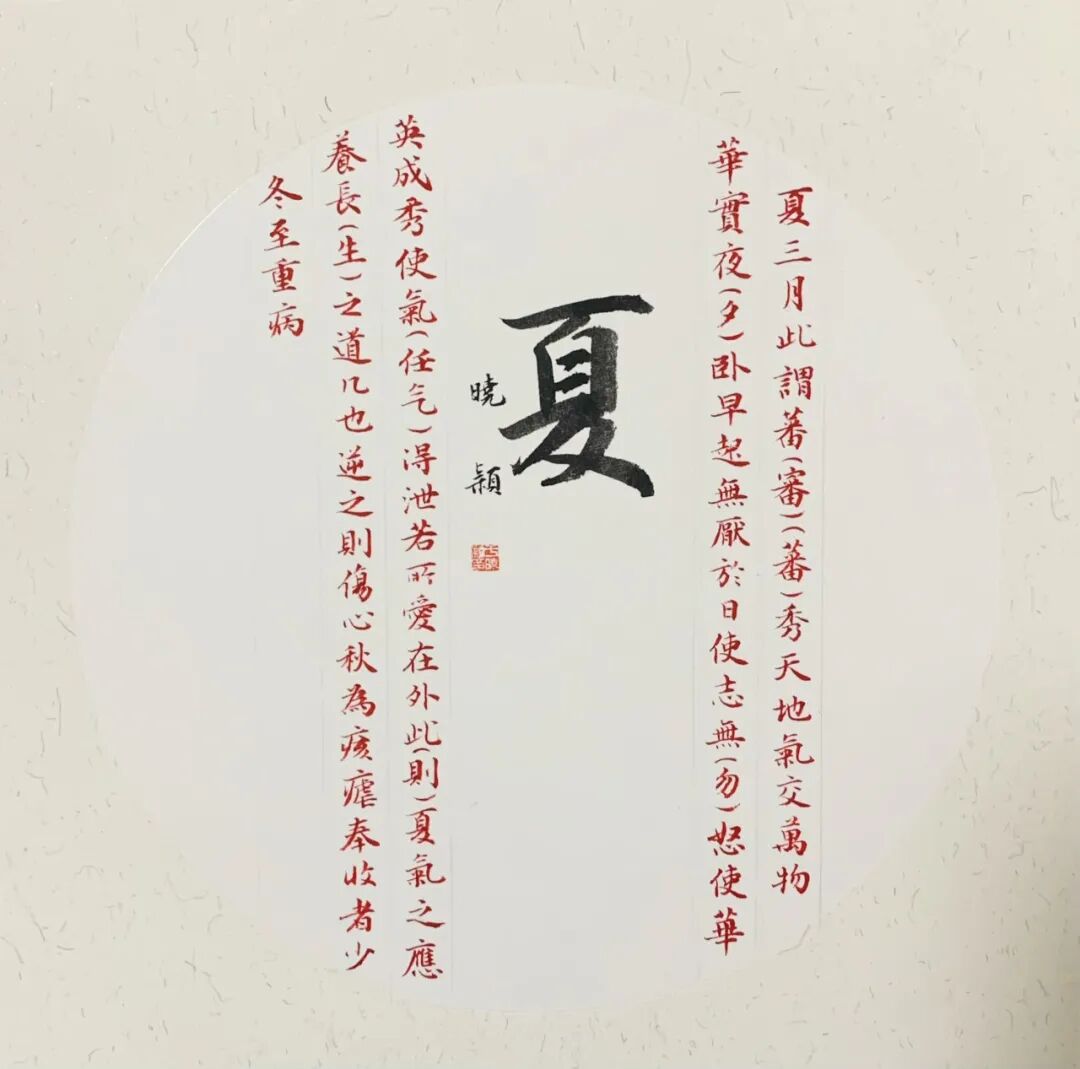 夏三月此謂蕃(審)(蕃)秀天地氣交萬物
華實夜(夕)卧早起無厭於日使志無(勿)怒使華
夏
曉穎
英成秀使氣(任气)得泄若所愛在外此(則)夏氣之應
養長(生)之道几也逆之則傷心秋為痎瘧奉收者少
冬至重病